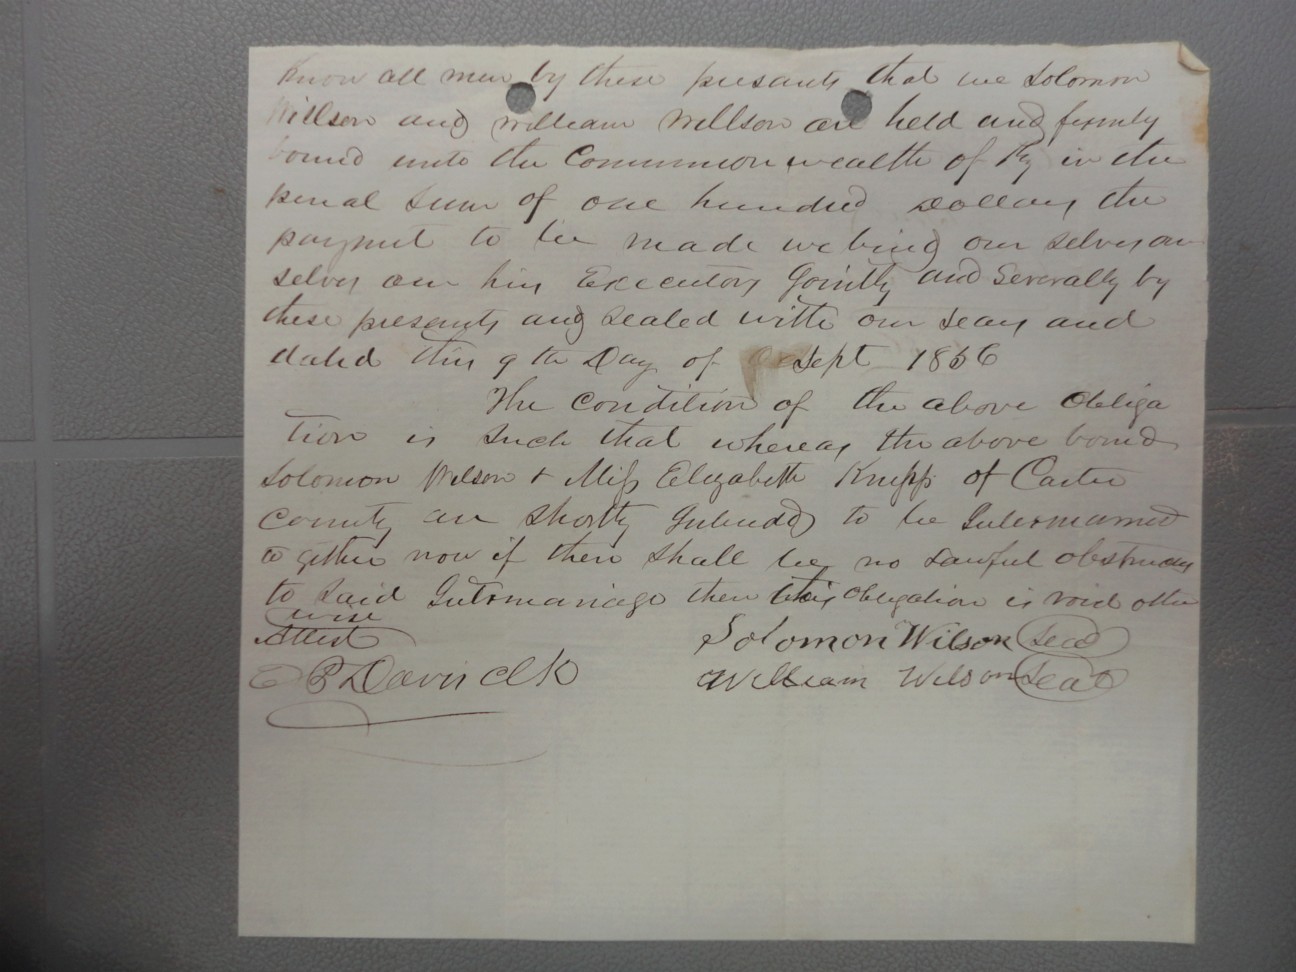 Know all men by these presents that we Solomon
Willson and William Willson are held and firmly
bound unto the Commonwealth of Ky in the
penal sum of one hundred Dollars the
paymnt to be made we bind our selves our
selves our hirs Executors Jointly and Severally by
these presents and sealed with our seals and
dated this 9th Day of Sept 1856
The condition of the above obliga
tion is such that whereas the above bound
Solomon Wilson + Miss Elizabeth Knipp of Carter
County are shortly Intended to be Intermarried
to gether now if there shall be no lawful obstruction
to said Intermariage then this obligation is void other
wise
Attest
Solomon Wilson Seal
William Wilson Seal
B Davis clk